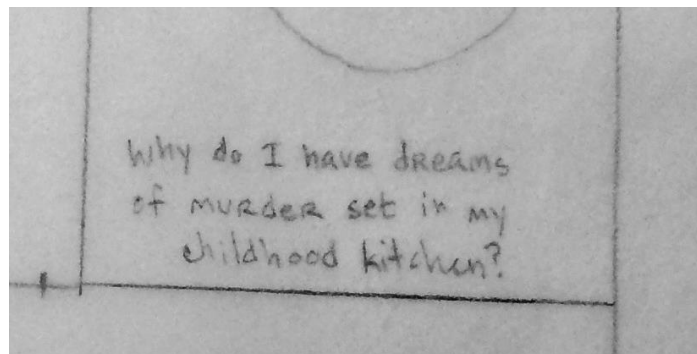 Why do I have dreams
of murder set in my
childhood kitchen?